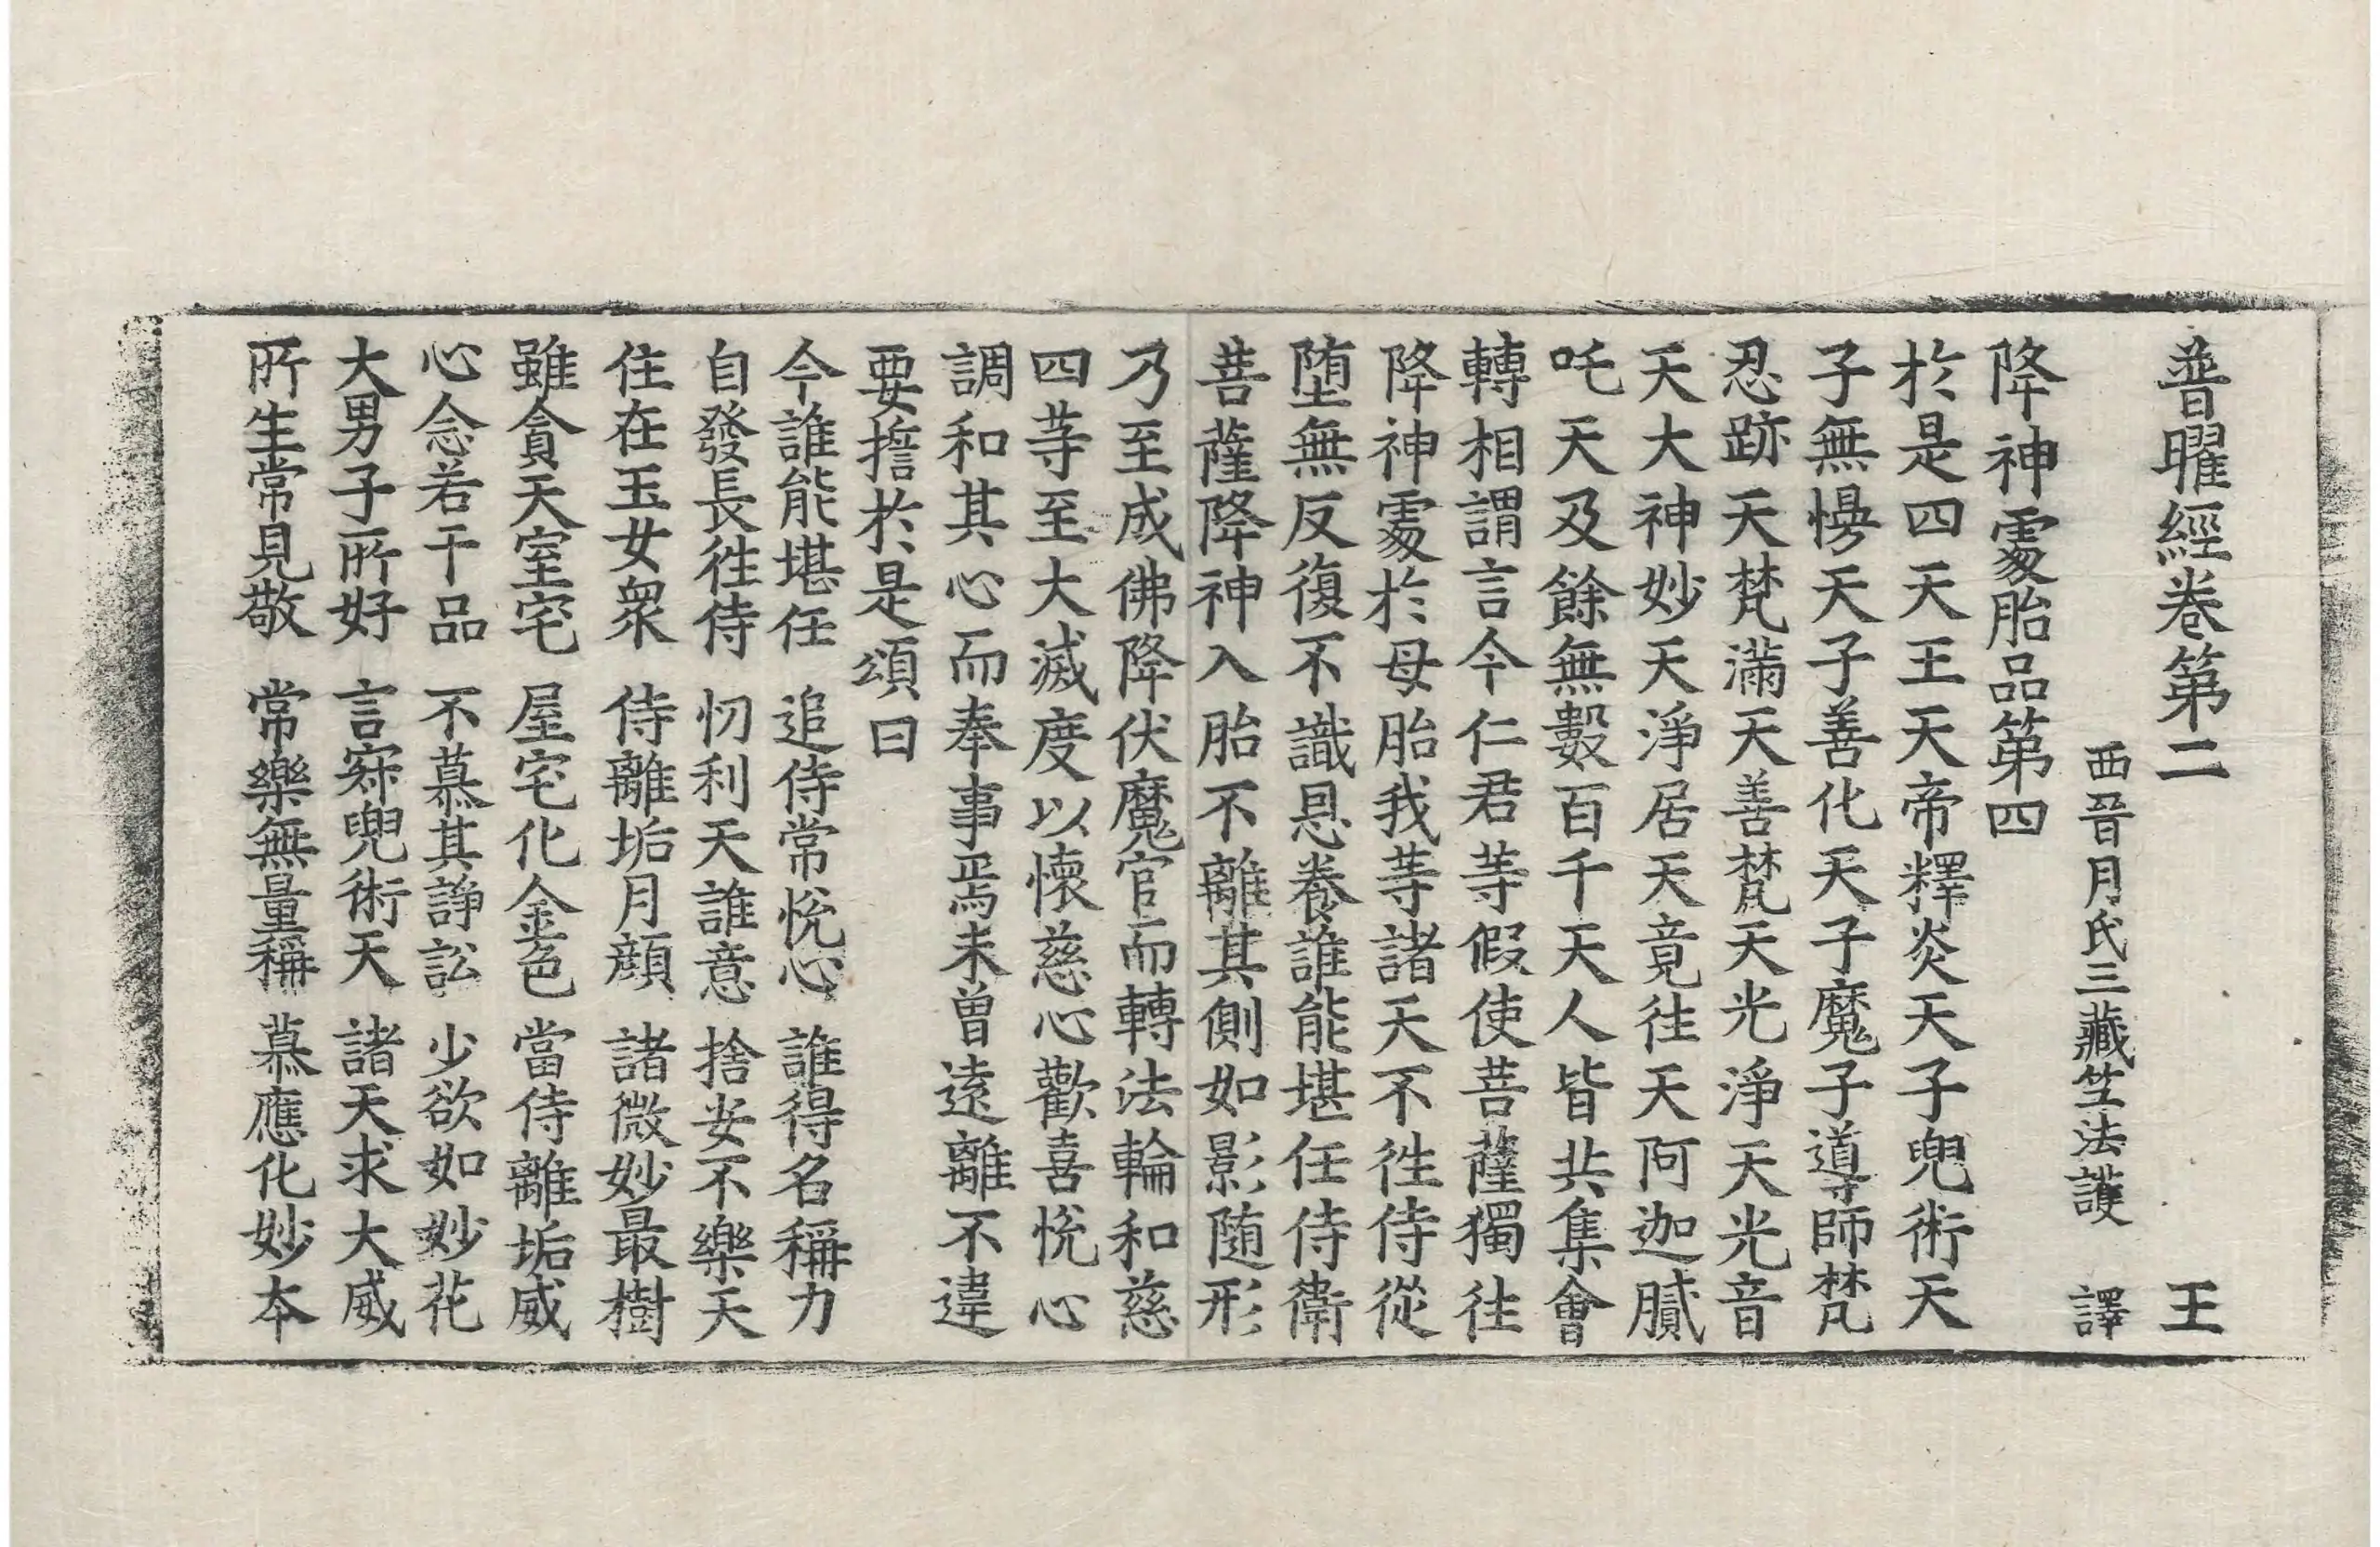 普曜經卷第二 王
西晉月氏三藏竺法護 譯
降神䖏胎品第四
於是四天王天帝釋炎天子兜術天
子無慢天子善化天子魔子導師梵
忍跡天天梵滿天善梵天光淨天光音
天大神妙天淨居天竟往天阿迦膩
吒天及餘無數百千天人皆共集會
轉相謂言今仁君等假使菩薩獨往
降神䖏於母胎我等諸天不往侍從
墮無反復不識恩養誰能堪任侍衛
菩薩降神入胎不離其側如影随形
乃至成佛降伏魔官而轉法輪和慈
四等至大滅度以懷慈心歡喜悅心
調和其心而奉事焉未曾遠離不違
要誓於是頌曰
今誰能堪任 追侍常悅心 誰得名稱力
自發長往侍 忉利天誰意 捨安不樂天
住在玉女衆 侍離垢月顏 諸微妙最樹
雖貪天室宅 屋宅化金色 當侍離垢威
心念若干品 不慕其諍訟 少欲如妙花
大男子所好 言寂兜術天 諸天求大威
所生常見敬 常樂無量稱 慕應化妙本